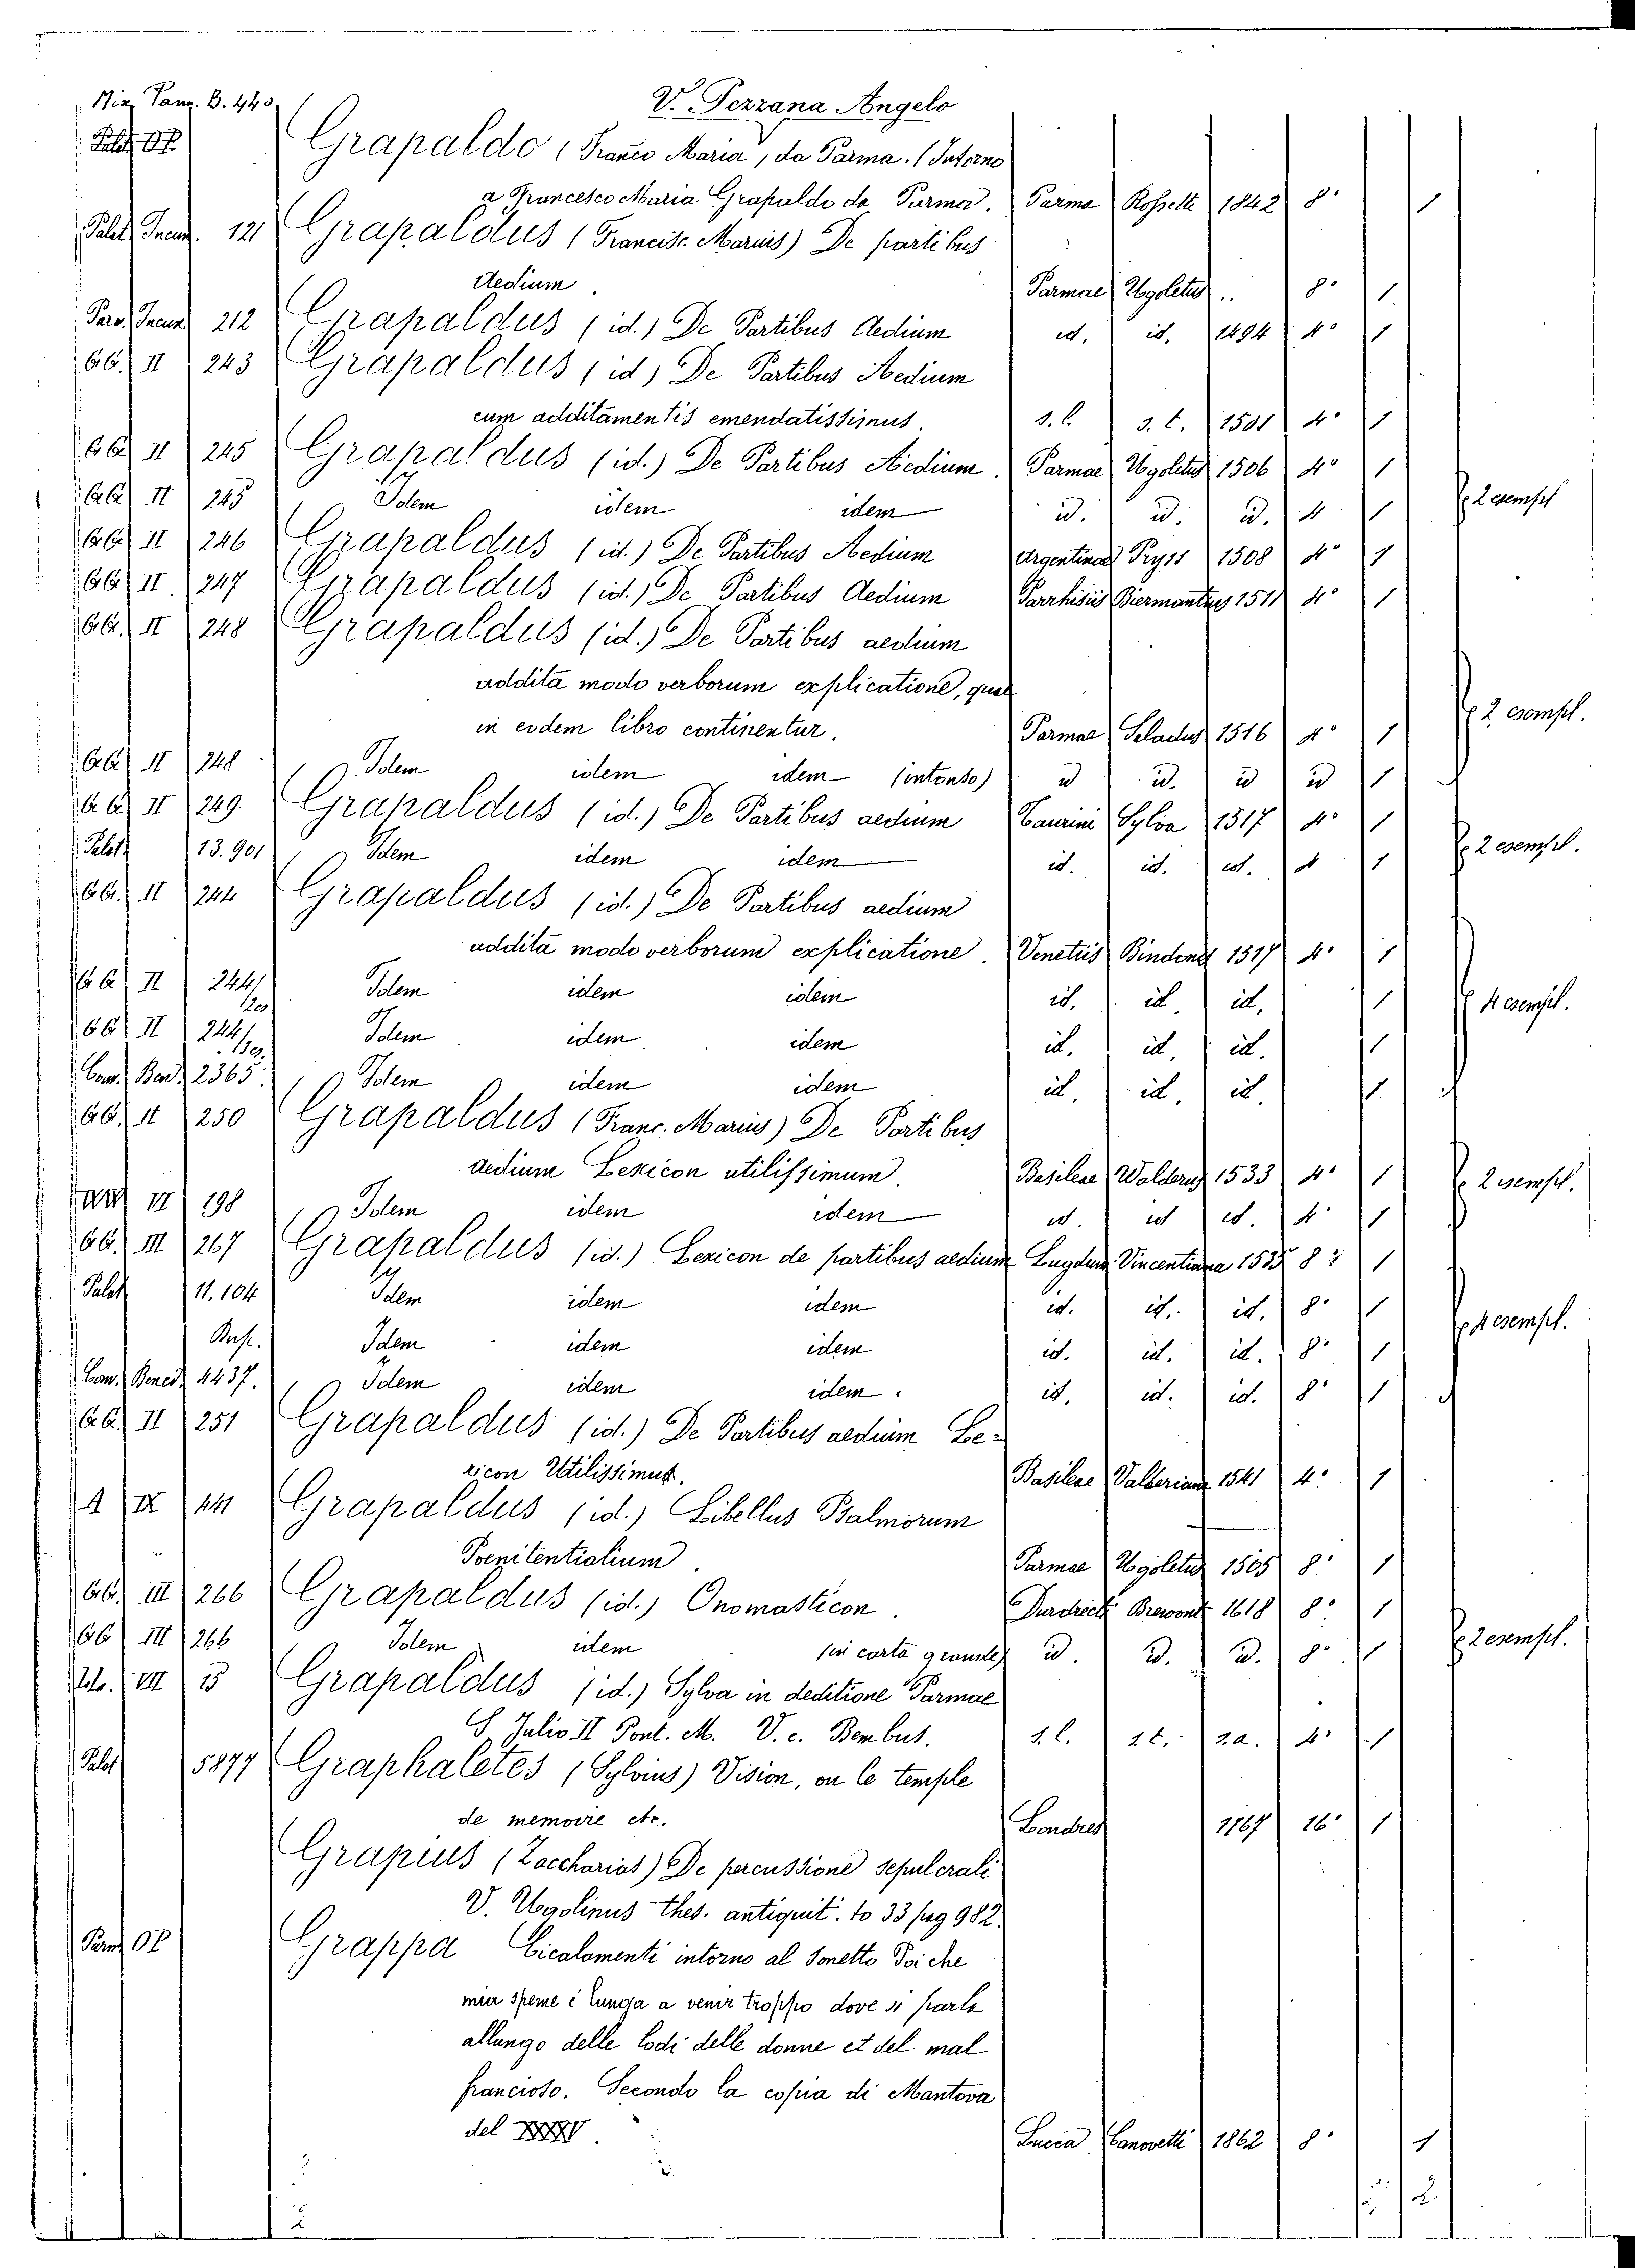 Parm. B. 440 V. Pezzana Angelo
Palat. Grapaldo (Franco Maria, da Parma. (Intorno
a Francesco Maria Grapaldo da Parma. Parma Rossetti 1842 8° 1
Palat. Incun. 121 Grapaldus (Francisc. Marius) De partibus
Aedium Parmae Ugoletus .. 8° 1
Incun. 212 Grapaldus (id.) De Partibus Aedium id. id. 1494 4° 1
GG. II 243 Grapaldus (id) De Partibus Aedium
cum additamentis emendatissimus. s. l. s. t. 1501 4° 1
GG II 245 Grapaldus (id.) De Partibus Aedium. Parmae Ugoletus 1506 4° 1
GG II 245 Idem idem idem id. id. id. 4 1 2 esempl
GG II 246 Grapaldus (id.) De Partibus Aedium Argentinae Pryss 1508 4° 1
GG II 247 Grapaldus (id.) De Partibus Aedium Parrhisiis Biermantius 1511 4° 1
GG. II 248 Grapaldus (id.) De Partibus aedium
addita modo verborum explicatione, quae
in eodem libro continentur. Parmae Saladus 1516 4° 1 2 esempl.
GG II 248 Idem idem idem (intonso) id id. id id 1
GG II 249. Grapaldus (id.) De Partibus aedium Taurini Sylva 1517 4° 1
Palat. 13.901 Idem idem idem id. id. id. 4 1 2 esempl.
GG. II 244 Grapaldus (id.) De Partibus aedium
addita modo verborum explicatione. Venetiis Bindonis 1517 4° 1
GG II 244 Idem idem idem id. id id. 1 4 esempl.
GG II 244 Idem idem idem id. id. id. 1
2365. Idem idem idem id. id. id. 1
GG. II 250 Grapaldus (Franc. Marius) De Partibus
aedium Lexicon utilissimum. Basileae Walderus 1533 4° 1 2 esempl.
II 198 Idem idem idem id. id id. 4° 1
GG. III 267 Grapaldus (id.) Lexicon de partibus aedium Lugduni Vincentiana 1535 8° 1
Palat 11.104 Idem idem idem id. id. id. 8° 1 4 esempl.
Idem idem idem id. id. id. 8° 1
Bened. 4437. Idem idem idem. id. id. id. 8° 1
GG. II 251 Grapaldus (id.) De Partibus aedium Le-
xicon Utilissimus. Basileae Valderiana 1541 4° 1
A IX 441 Grapaldus (id.) Libellus Psalmorum
Poenitentialium. Parmae Ugoletus 1505 8° 1
GG. III 266 Grapaldus (id.) Onomasticon. Durdrecti 1618 8° 1
GG III 266 Idem idem (in carta grande) id. id. id. 8° 1 2 esempl.
VII 15 Grapaldus (id.) Sylva in deditione Parmae
S. Julio II Pont. M. V. c. Bembus. s. l. s. t. s. a. 4° 1
Palat 5877 Graphaletes (Sylvius) Vision, ou le temple
de memoire etc. Londres 1767 16° 1
Grapius (Zaccharias) De percussione sepulcrali
V. Ugolinus thes. antiquit. to 33 pag 982.
Parm. OP Grappa Cicalamenti intorno al Sonetto Poi che
mia speme è lunga a venir troppo dove si parla
allungo delle lodi delle donne et del mal
francioso. Secondo la copia di Mantova
del XXXXV Lucca Canovetti 1862 8° 1
2